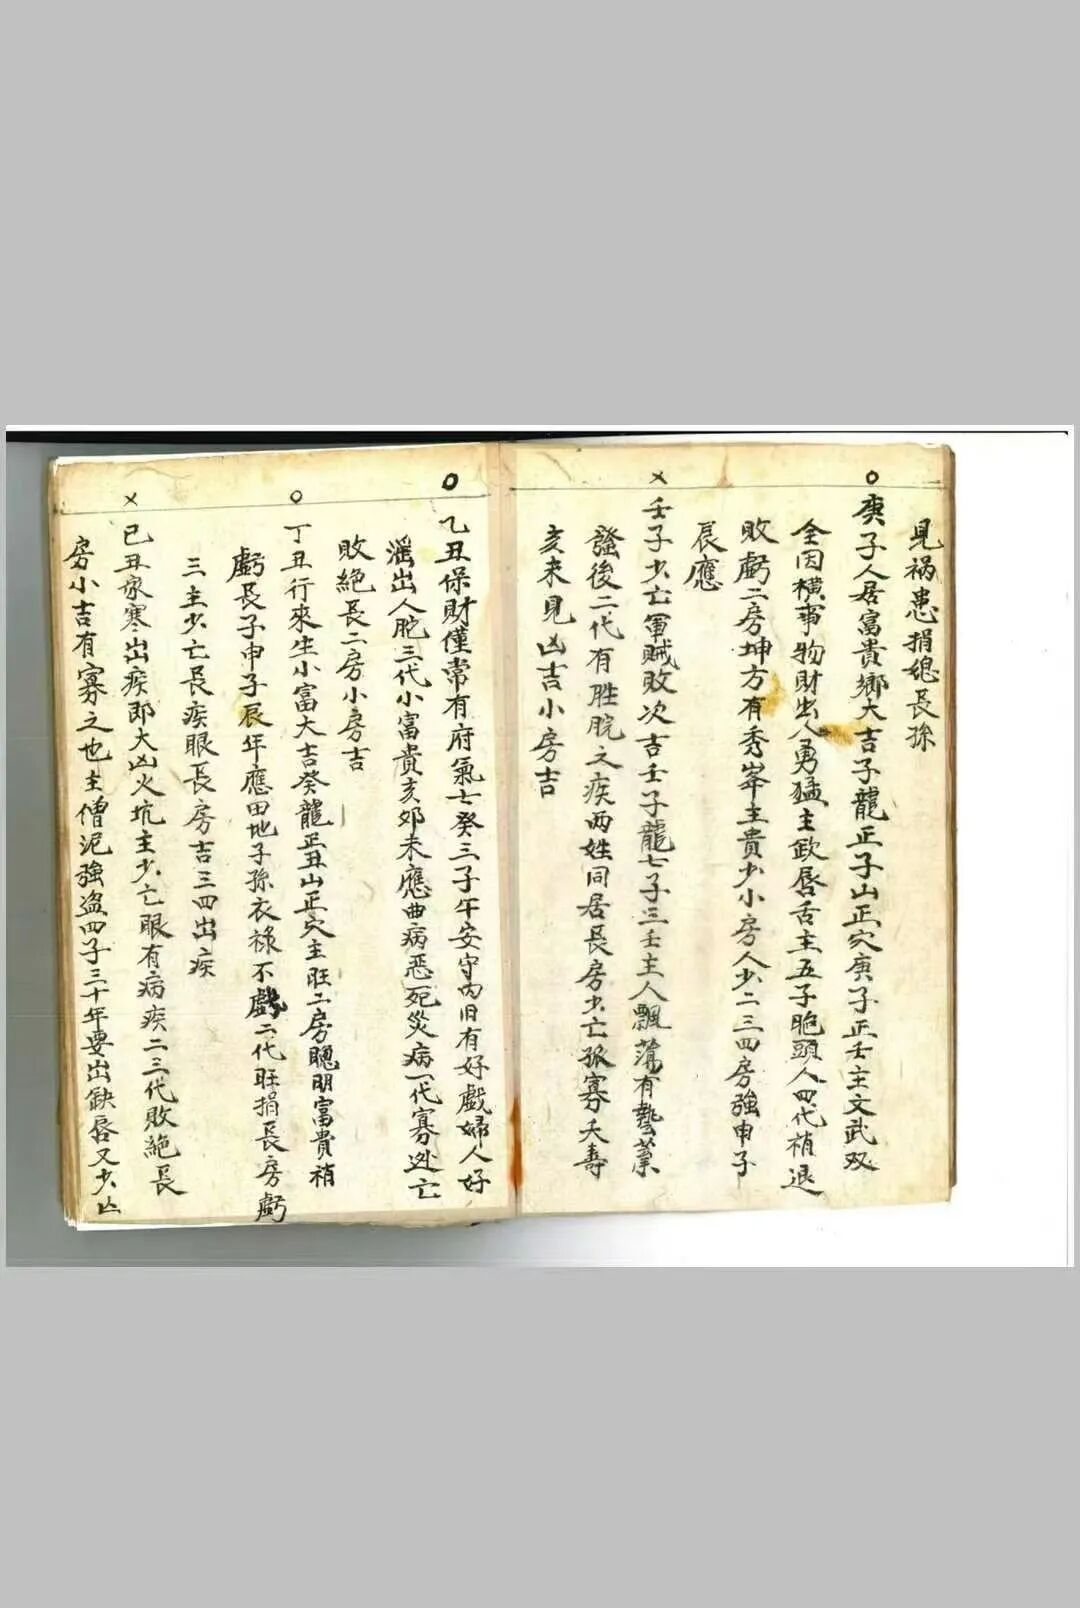 見禍患捐媳長孫
庚子人居富貴鄉大吉子龍正子山正穴庚子正壬主文武双
全因橫事物財出人勇猛主欧唇舌主五子胞頭人四代稍退
敗虧二房坤方有秀峯主貴少小房人少二三四房強申子
辰應
壬子少亡軍賊敗次吉壬子龍七子三壬主人飄蕩有藝業
發後二代有胜脘之疾两姓同居長房少亡孤寡夭壽
亥未見凶吉小房吉
乙丑保財僅常有府氣士癸三子午安守内旧有好戯婦人好
滛出人脃三代小富貴亥夘未應曲病恶死災病一代寡迯亡
敗絕長二房小房吉
丁丑行來生小富大吉癸龍正丑山正穴主旺二房聰明富貴稍
虧長子申子辰年應田地子孫衣祿不虧二代旺捐長房虧
三主少亡長疾眼長房吉三四出疾
己丑家寒出疾即大凶火坑主少亡眼有病疾二三代敗絕長
房小吉有寡之也主僧泥強盜四子三十年要出缺唇又少凶